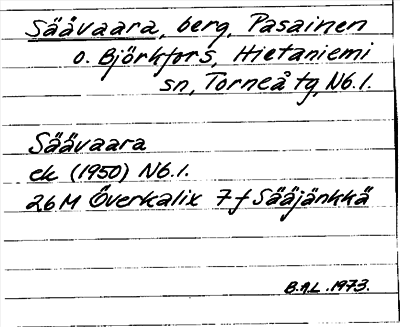 Säävaara, berg, Pasainen
o. Björkfors, Hietaniemi
sn, Torneå tg, Nb.l.
Säävaara
ek (1950) Nb.l.
26M Överkalix 7f Sääjänkkä
B.A.L. 1973.